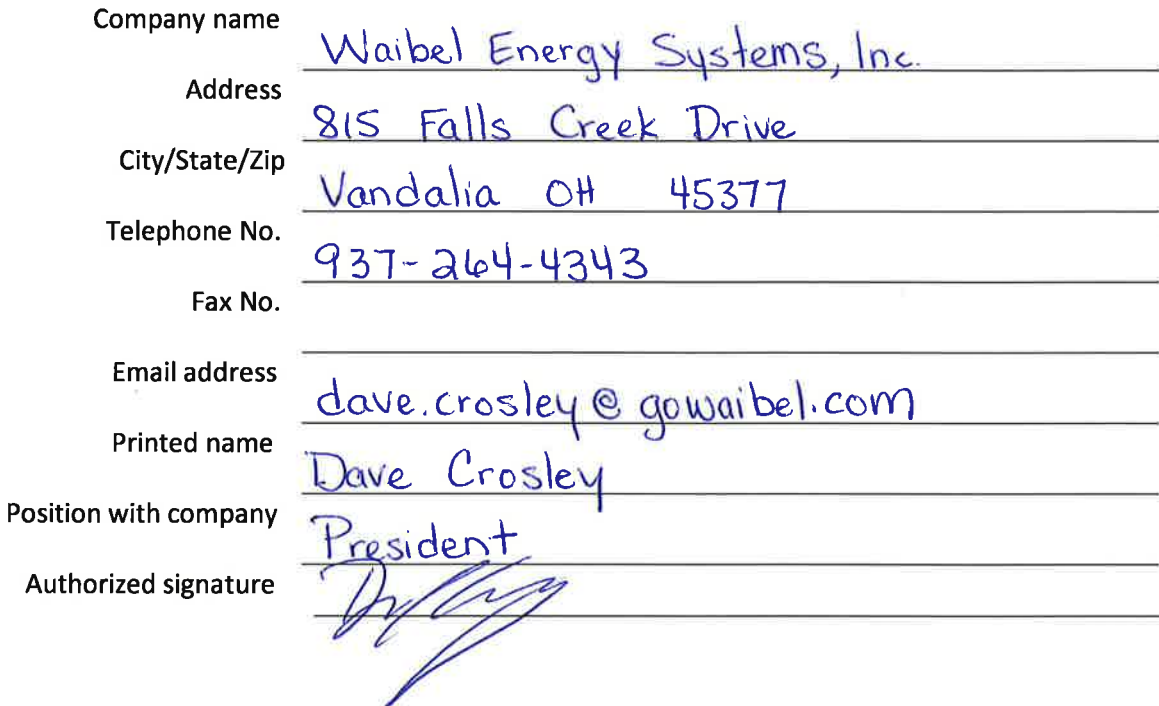 Company name Waibel Energy Systems, Inc.
Address 815 Falls Creek Drive
City/State/Zip Vandalia OH 45377
Telephone No. 937-264-4343
Fax No.
Email address dave.crosley@gowaibel.com
Printed name Dave Crosley
Position with company President
Authorized signature